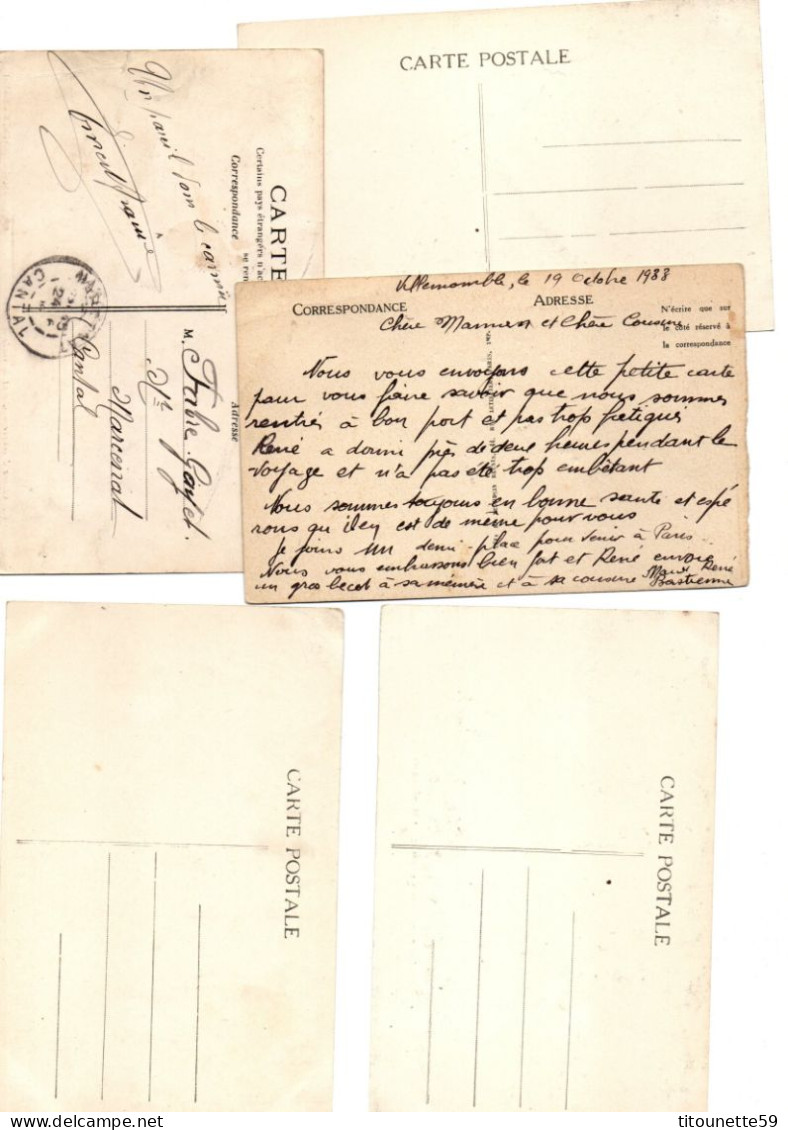 CARTE POSTALE
CARTE
Certains pays étrangers n'ac
se ren
Correspondance
Adresse
Un pareil dans le
M. Fabre Gayet.
Mt
Marcenat
Cantal
CANTAL
24
Villemomble, le 19 Octobre 1938
CORRESPONDANCE
ADRESSE
N'écrire que sur
le côté réservé à
la correspondance
Chère Maman et Chère Cousine
Nous vous envoyons cette petite carte
pour vous faire savoir que nous sommes
rentrés à bon port et pas trop fatigués
René a dormi près de deux heures pendant le
voyage et n'a pas été trop embêtant
Nous sommes toujours en bonne santé et espé
rons qu'il en est de même pour vous
Je joins un demi-place pour venir à Paris..
Nous vous embrassons bien fort et René envoie
un gros bécot à sa mémère et à sa cousine
René
Bastienne
CARTE POSTALE
CARTE POSTALE
titounette59